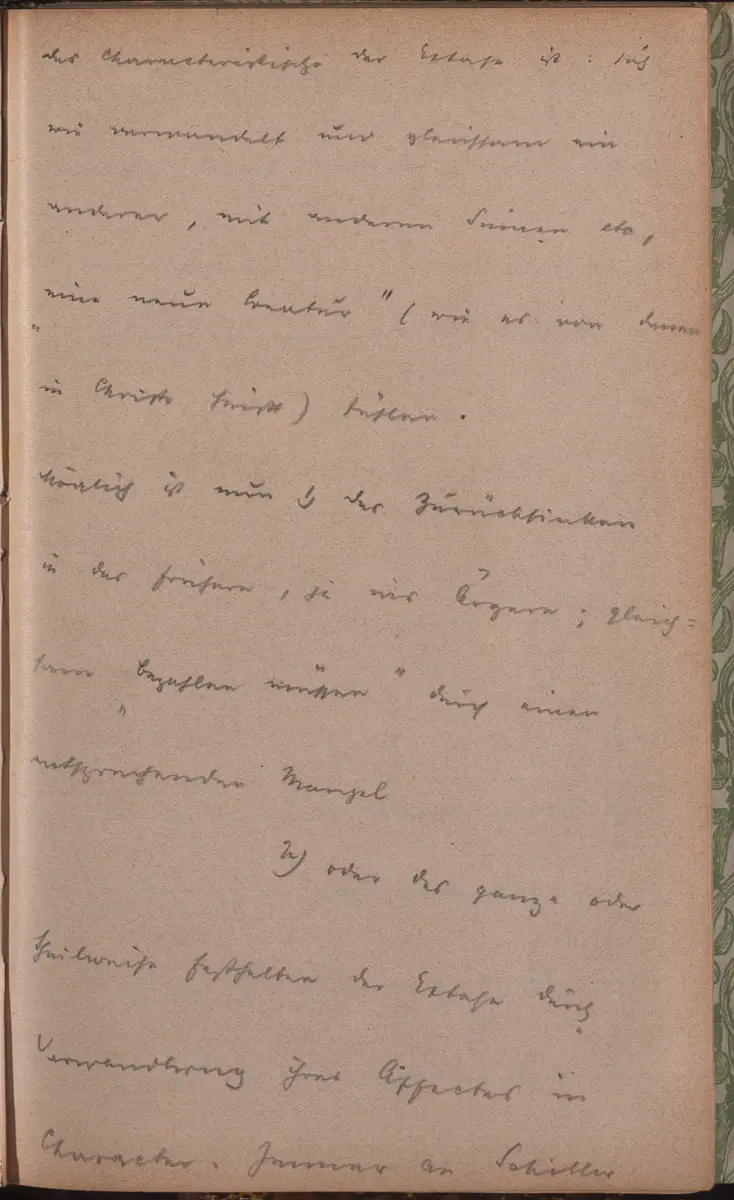 das Characteristische der Extase ist: sich
wie verwandelt und gleichsam ein
anderer, mit anderen Sinnen etc,
„eine neue Creatur" (wie es von denen
in Christo heisst) fühlen.
Möglich ist nun 1) das Zurücksinken
in das frühere, ja ins Ärgere; gleich=
sam „bezahlen müssen" durch einen
entsprechenden Mangel
2) oder das ganze oder
theilweise festhalten der Extase durch
Verwandlung ihres Affectes in
Character. Immer an Schiller